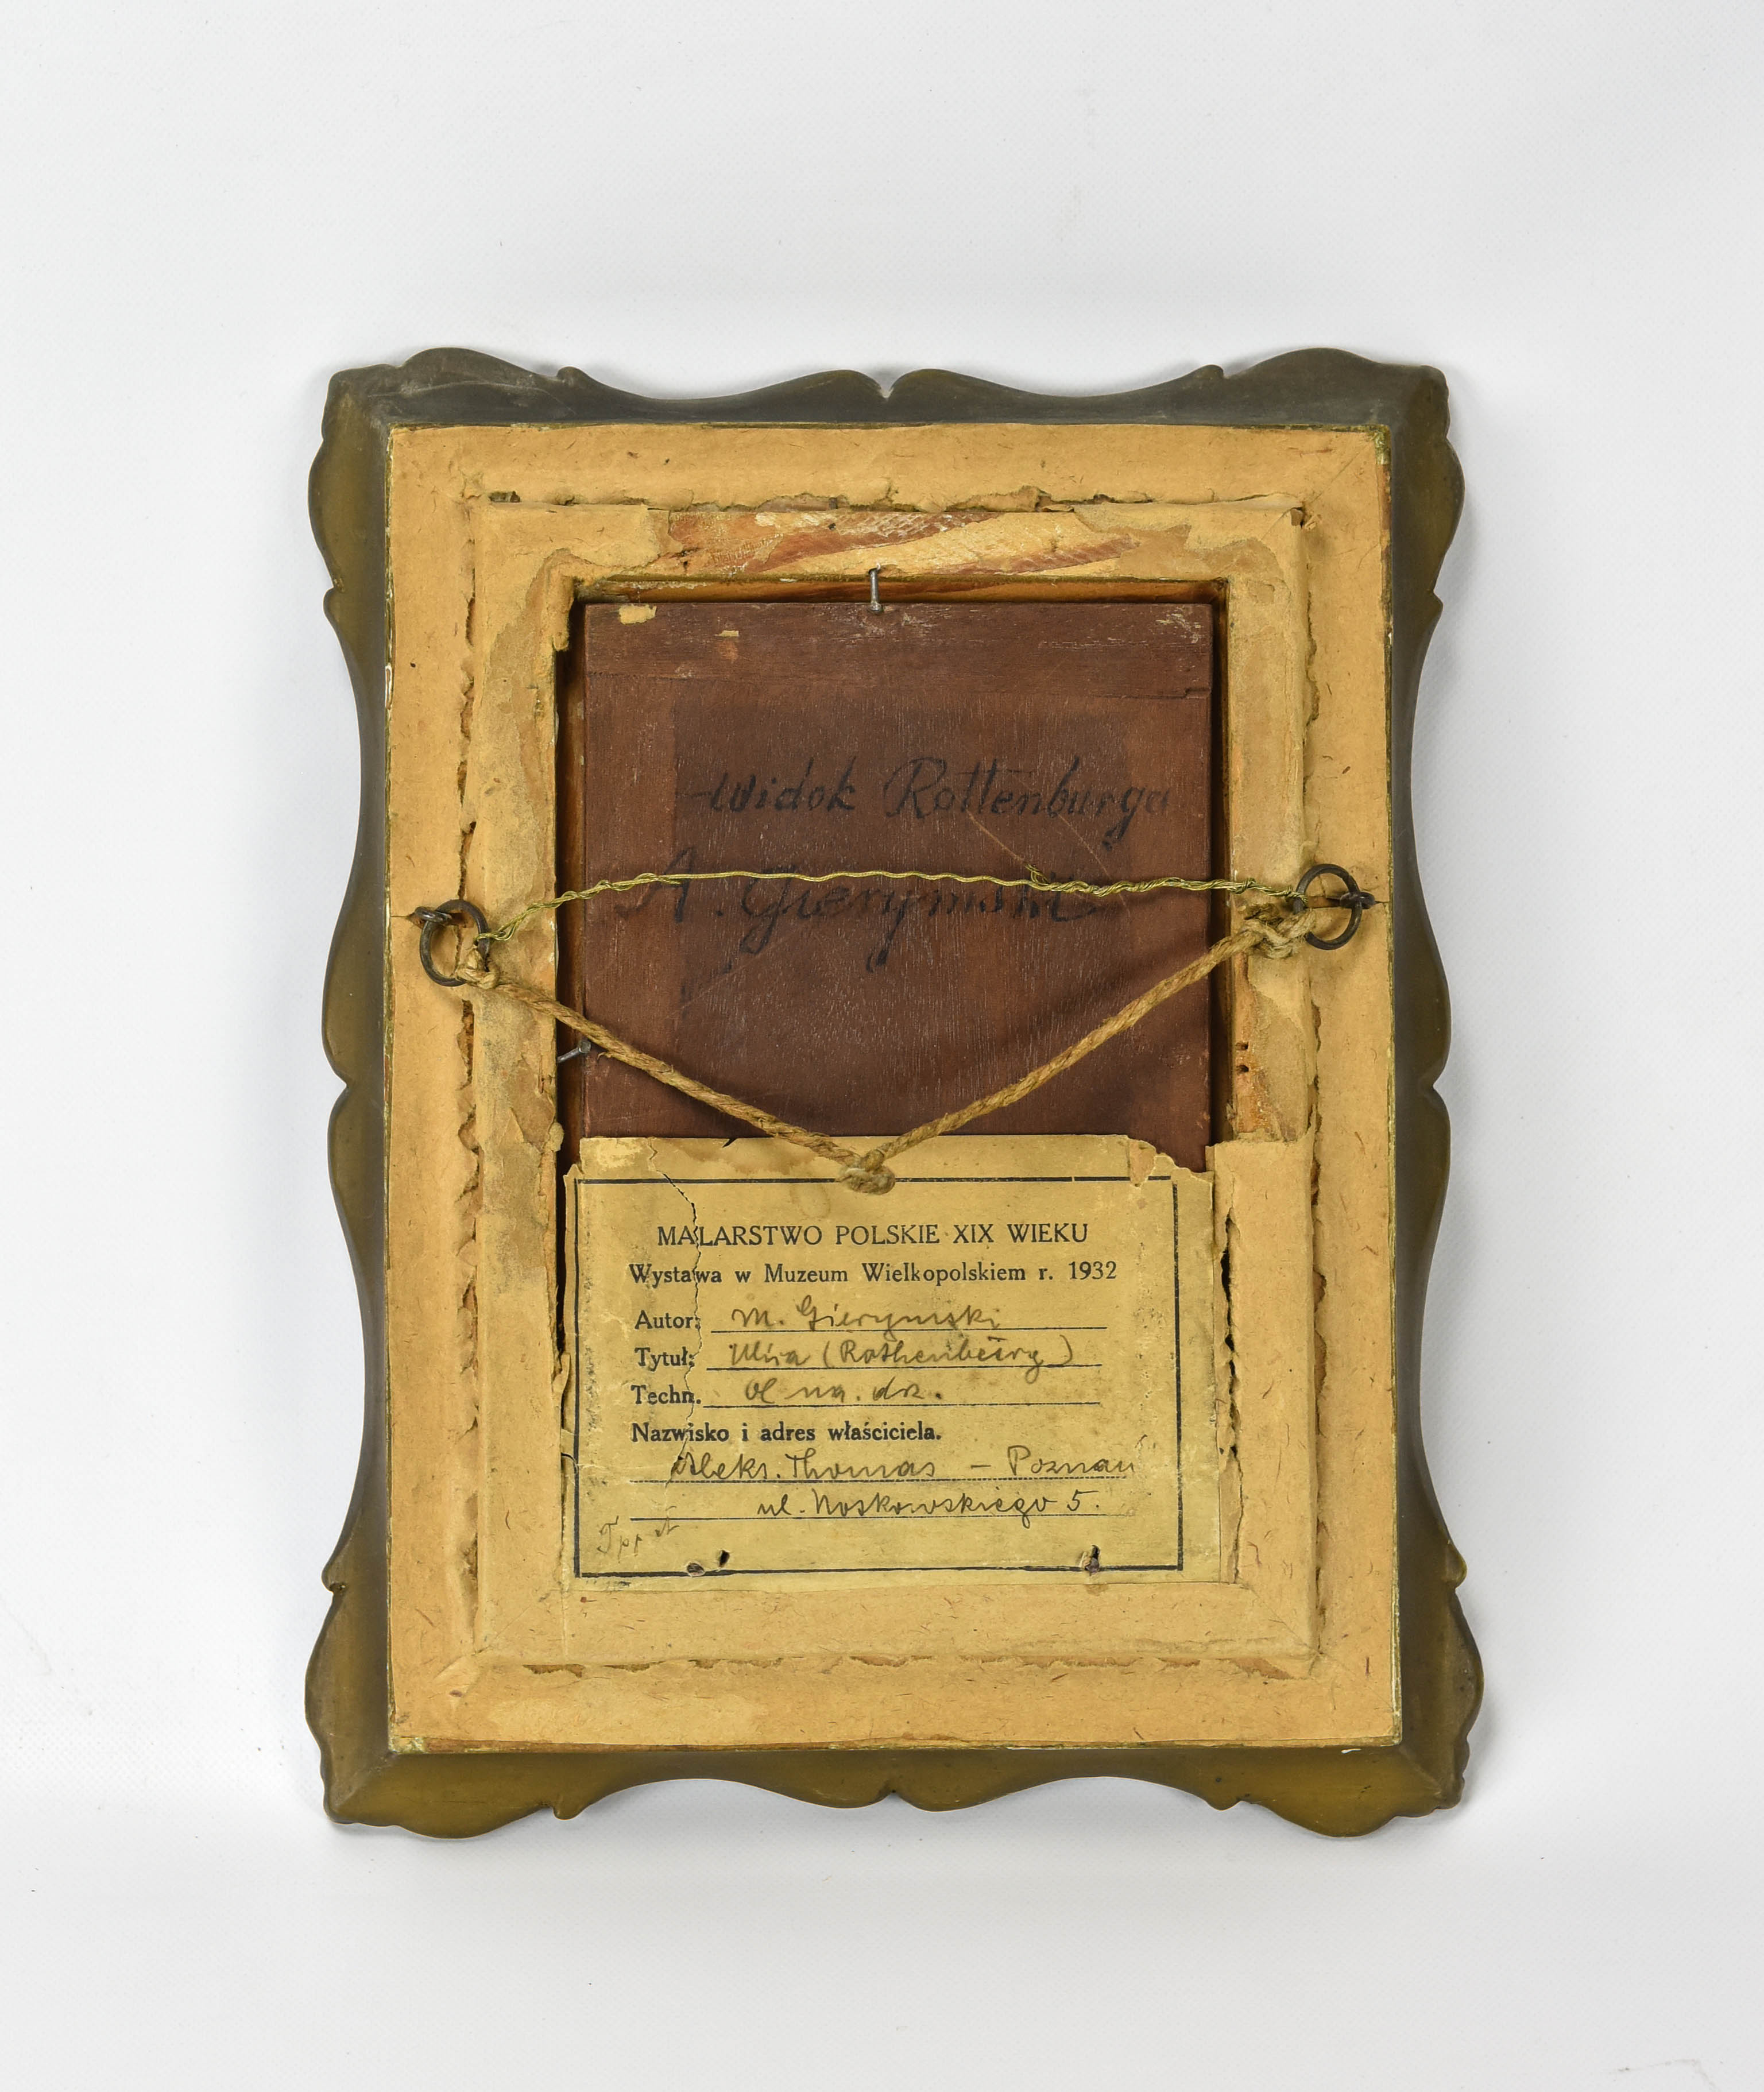 Widok Rottenburga
A. Gierymski
MALARSTWO POLSKIE XIX WIEKU
Wystawa w Muzeum Wielkopolskiem r. 1932
Autor: M. Gierymski
Tytuł: Ulica (Rothenburg)
Techn. Ol na. drz.
Nazwisko i adres właściciela.
Aleks. Thomas – Poznań
ul. Noskowskiego 5.